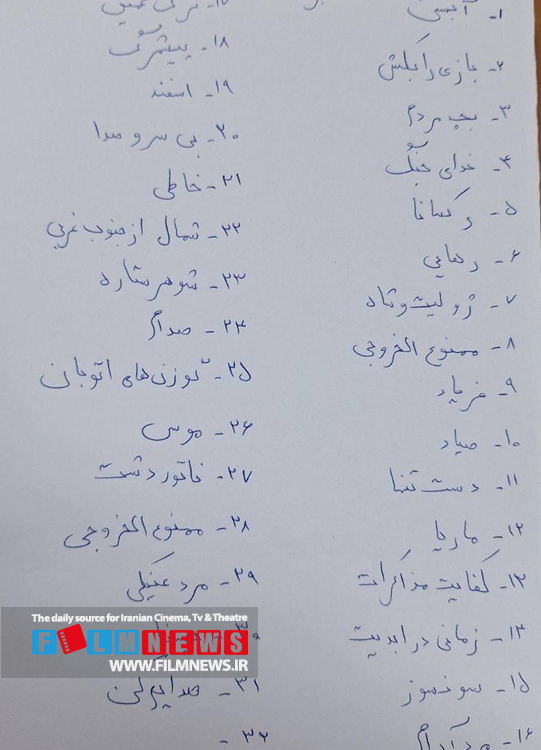 ۲- بازی را بکش
۳- بچه مردم
۴- خدای جنگ
۵- رکسانا
۶- رهایی
۷- ژولیت و شاه
۸- ممنوع الخروجی
۹- فریاد
۱۰- صیاد
۱۱- دست تنها
۱۲- ماریا
۱۳- کفایت مذاکرات
۱۴- زمانی در ابدیت
۱۵- سونسوز
۱۶-
۱۸- پیشمرگ
۱۹- اسفند
۲۰- بی سر و صدا
۲۱- خاطی
۲۲- شمال از جنوب غربی
۲۳- شوهر ستاره
۲۴- صدام
۲۵- گوزن‌های اتوبان
۲۶- موسی
۲۷- ناتوردشت
۲۸- ممنوع الخروجی
۲۹- مرد عینکی
۳۱-
۳۲-
The daily source for Iranian Cinema, Tv & Theatre
FILMNEWS
WWW.FILMNEWS.IR